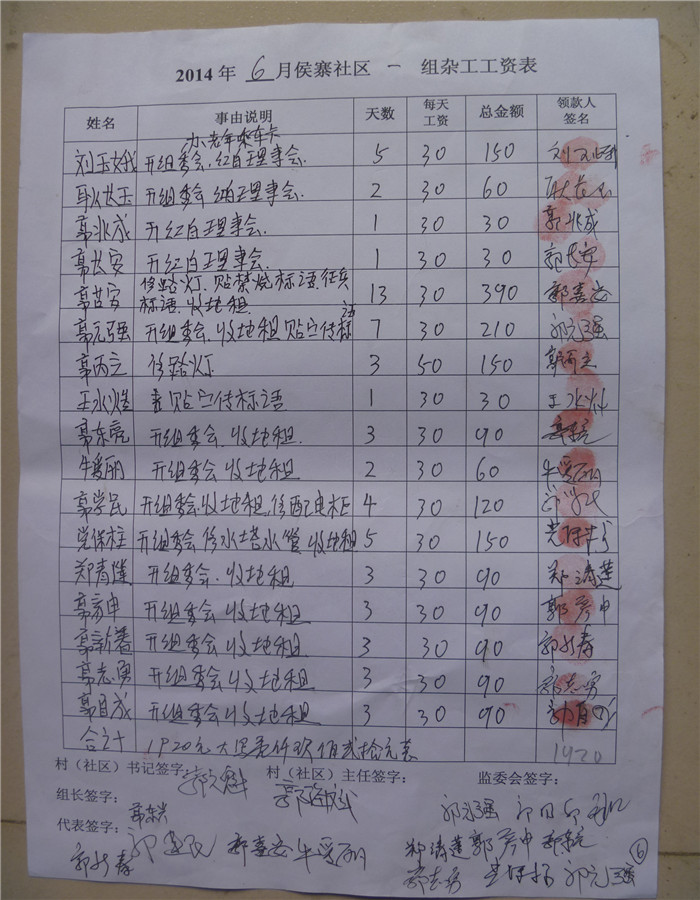 2014年 6 月侯寨社区 一 组杂工工资表
姓名 事由说明 天数 每天工资 总金额 领款人签名
办老年乘车卡
刘玉娥 开组委会.红白理事会. 5 30 150
耿长玉 开组委会 红白理事会. 2 30 60
郭兆成 开红白理事会. 1 30 30 郭兆成
郭长安 开红白理事会. 1 30 30 郭长安
修路灯.贴禁烧标语.征兵
郭喜安 标语.收地租. 13 30 390 郭喜安
郭元强 开组委会.收地租 贴宣传标语 7 30 210 郭元强
郭丙立 修路灯 3 50 150 郭丙立
王水灿 贴宣传标语 1 30 30 王水灿
郭东亮 开组委会.收地租. 3 30 90 郭东亮
牛爱丽 开组委会 收地租. 2 30 60 牛爱丽
郭学民 开组委会.收地租.修配电柜 4 30 120
党保柱 开组委会 修水塔水管 收地租 5 30 150 党保柱
郑清莲 开组委会.收地租 3 30 90 郑清莲
郭彦申 开组委会 收地租 3 30 90 郭彦申
郭新春 开组委会 收地租. 3 30 90 郭新春
郭志勇 开组委会 收地租 3 30 90 郭志勇
郭自成 开组委会 收地租. 3 30 90
合计 1920元 大写壹仟玖佰贰拾元整 1920
村（社区）书记签字： 村（社区）主任签字： 监委会签字：
组长签字： 郭东亮
代表签字： 郭喜安 牛爱丽 郑清莲 郭彦申 郭东亮
郭新春 郭志勇 党保柱 郭元强 6